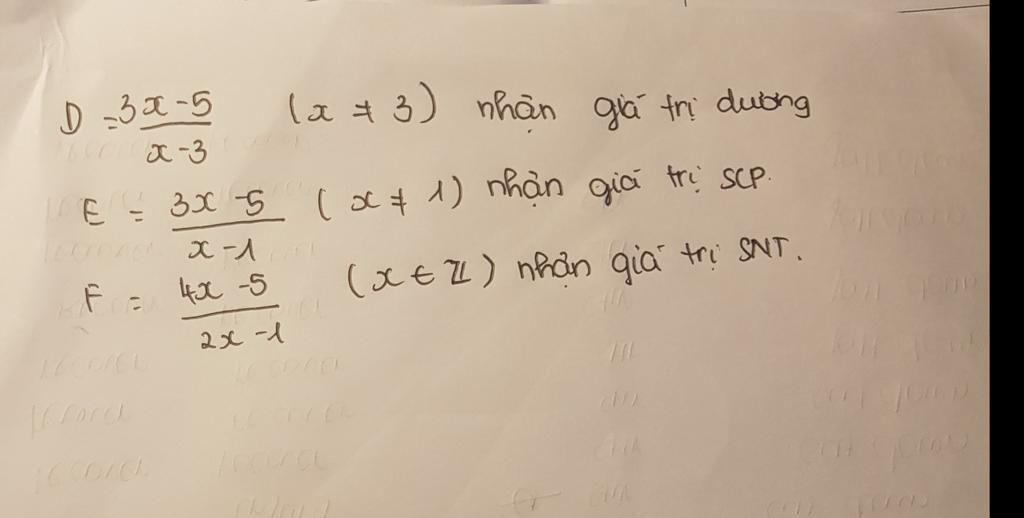 D = 3x - 5 / x - 3 (x ≠ 3) nhận giá trị dương
E = 3x - 5 / x - 1 (x ≠ 1) nhận giá trị SCP.
F = 4x - 5 / 2x - 1 (x ∈ Z) nhận giá trị SNT.